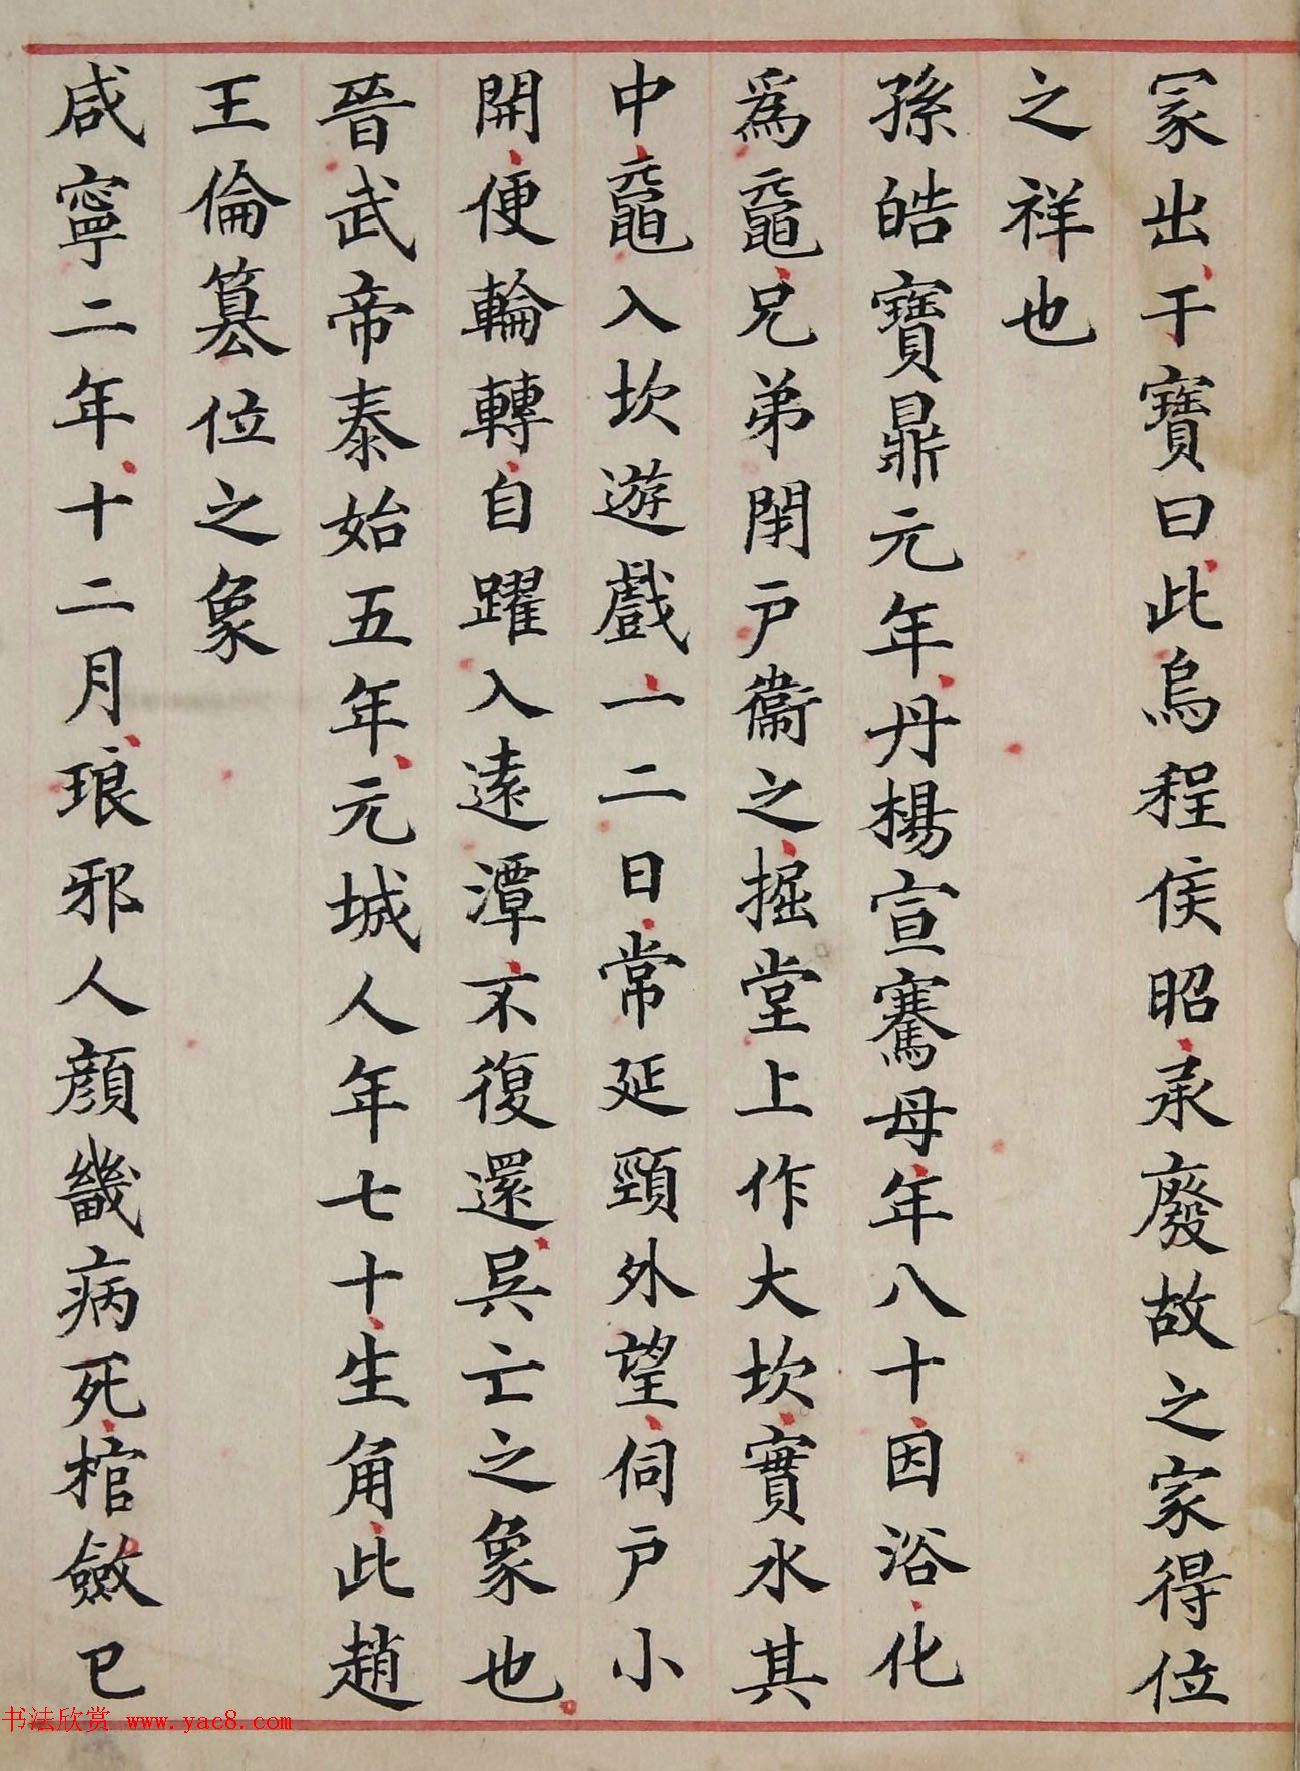 冢出干寶曰此烏程侯昭承廢故之家得位
之祥也
孫皓寶鼎元年丹楊宣騫母年八十因浴化
為黿兄弟閉戶衞之掘堂上作大坎實水其
中黿入坎遊戲一二日常延頸外望伺戶小
開便輪轉自躍入遠潭不復還吳亡之象也
晉武帝泰始五年元城人年七十生角此趙
王倫篡位之象
咸寧二年十二月琅邪人顏畿病死棺斂已
书法欣赏 www.yac8.com